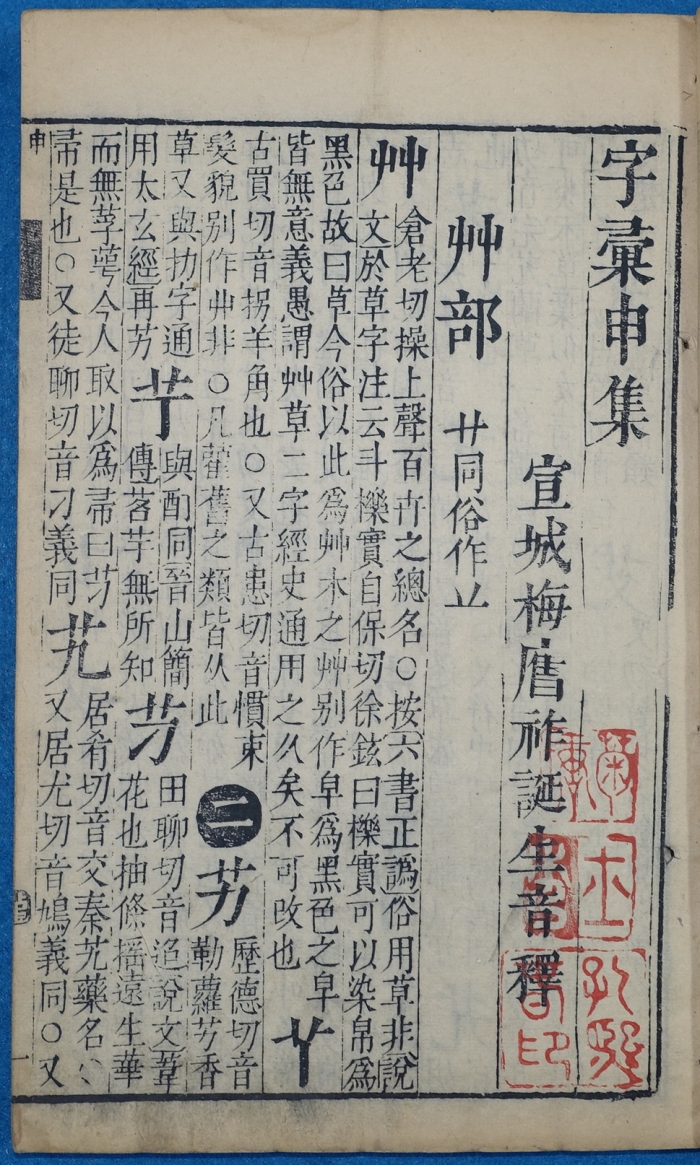 字彙申集
宣城梅膺祚誕生音釋
艸部 廾同俗作䒑
艸 倉老切操上聲百卉之總名○按六書正譌俗用草非說
文於草字注云斗櫟實自保切徐鉉曰櫟實可以染帛爲
黑色故曰草今俗以此爲艸木之艸别作皁爲黑色之皁
皆無意義愚謂艸草二字經史通用之久矣不可改也 𦫳
古買切音拐羊角也○又古患切音慣束
髮貌别作丱非○凡雚舊之類皆从此 二 艻 歷德切音
勒蘿艻香
草又與扐字通
用太玄經再艻 艼 與酊同晉山簡
傳茗艼無所知 芀 田聊切音迢說文葦
花也抽條搖遠生華
而無莩萼今人取以爲帚曰芀
帚是也○又徒聊切音刁義同 艽 居肴切音交秦艽藥名
又居尤切音鳩義同○又
申
一